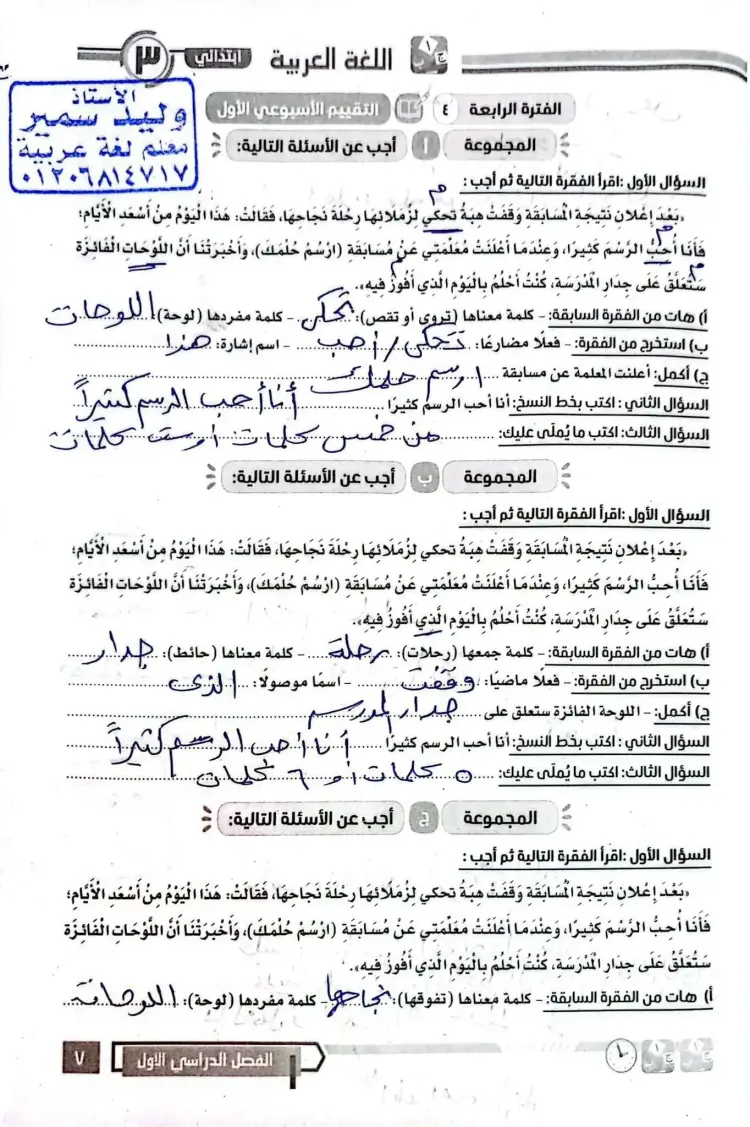 اللغة العربية ٣ ابتدائي
الأستاذ
وليد سمير
معلم لغة عربية
٠١٢٠٦٨١٤٧١٧
الفترة الرابعة ٤ التقييم الأسبوعي الأول
المجموعة أ أجب عن الأسئلة التالية:
السؤال الأول :اقرأ الفقرة التالية ثم أجب :
«بَعْدَ إِعْلَانِ نَتِيجَةِ الْمُسَابَقَةِ وَقَفَتْ هِبَةُ تَحكي لِزُمَلَائِهَا رِحْلَةَ نَجَاحِهَا، فَقَالَتْ: هَذَا الْيَوْمُ مِنْ أَسْعَدِ الْأَيَّامِ؛
فَأَنَا أُحِبُّ الرَّسْمَ كَثِيرًا، وَعِنْدَمَا أَعْلَنَتْ مُعَلِّمَتِي عَنْ مُسَابَقَةِ (ارْسُمْ حُلْمَكَ)، وَأَخْبَرَتْنَا أَنَّ اللَّوْحَاتِ الْفَائِزَةَ
سَتُعَلَّقُ عَلَى جِدَارِ الْمَدْرَسَةِ، كُنْتُ أَحْلُمُ بِالْيَوْمِ الَّذِي أَفُوزُ فِيهِ».
أ) هات من الفقرة السابقة: - كلمة معناها (تروي أو تقص): تحكى - كلمة مفردها (لوحة) اللوحات
ب) استخرج من الفقرة: - فعلًا مضارعًا: تحكى / أحب - اسم إشارة: هذا
ج) أكمل: أعلنت المعلمة عن مسابقة ارسم حلمك
السؤال الثاني : اكتب بخط النسخ: أنا أحب الرسم كثيرًا أنا أحب الرسم كثيراً
السؤال الثالث: اكتب ما يُملَى عليك: من خمس كلمات أو ست كلمات
المجموعة ب أجب عن الأسئلة التالية:
السؤال الأول :اقرأ الفقرة التالية ثم أجب :
«بَعْدَ إِعْلَانِ نَتِيجَةِ الْمُسَابَقَةِ وَقَفَتْ هِبَةُ تَحكي لِزُمَلَائِهَا رِحْلَةَ نَجَاحِهَا، فَقَالَتْ: هَذَا الْيَوْمُ مِنْ أَسْعَدِ الْأَيَّامِ؛
فَأَنَا أُحِبُّ الرَّسْمَ كَثِيرًا، وَعِنْدَمَا أَعْلَنَتْ مُعَلِّمَتِي عَنْ مُسَابَقَةِ (ارْسُمْ حُلْمَكَ)، وَأَخْبَرَتْنَا أَنَّ اللَّوْحَاتِ الْفَائِزَةَ
سَتُعَلَّقُ عَلَى جِدَارِ الْمَدْرَسَةِ، كُنْتُ أَحْلُمُ بِالْيَوْمِ الَّذِي أَفُوزُ فِيهِ».
أ) هات من الفقرة السابقة: - كلمة جمعها (رحلات): رحلة - كلمة معناها (حائط): جدار
ب) استخرج من الفقرة: - فعلًا ماضيًا: وقفت - اسمًا موصولًا: الذى
ج) أكمل: - اللوحة الفائزة ستعلق على جدار المدرسة
السؤال الثاني : اكتب بخط النسخ: أنا أحب الرسم كثيرًا أنا أحب الرسم كثيراً
السؤال الثالث: اكتب ما يُملَى عليك: ٥ كلمات أو ٦ كلمات
المجموعة ج أجب عن الأسئلة التالية:
السؤال الأول :اقرأ الفقرة التالية ثم أجب :
«بَعْدَ إِعْلَانِ نَتِيجَةِ الْمُسَابَقَةِ وَقَفَتْ هِبَةُ تَحكي لِزُمَلَائِهَا رِحْلَةَ نَجَاحِهَا، فَقَالَتْ: هَذَا الْيَوْمُ مِنْ أَسْعَدِ الْأَيَّامِ؛
فَأَنَا أُحِبُّ الرَّسْمَ كَثِيرًا، وَعِنْدَمَا أَعْلَنَتْ مُعَلِّمَتِي عَنْ مُسَابَقَةِ (ارْسُمْ حُلْمَكَ)، وَأَخْبَرَتْنَا أَنَّ اللَّوْحَاتِ الْفَائِزَةَ
سَتُعَلَّقُ عَلَى جِدَارِ الْمَدْرَسَةِ، كُنْتُ أَحْلُمُ بِالْيَوْمِ الَّذِي أَفُوزُ فِيهِ».
أ) هات من الفقرة السابقة: - كلمة معناها (تفوقها): نجاحها - كلمة مفردها (لوحة): اللوحات
الفصل الدراسي الأول ٧